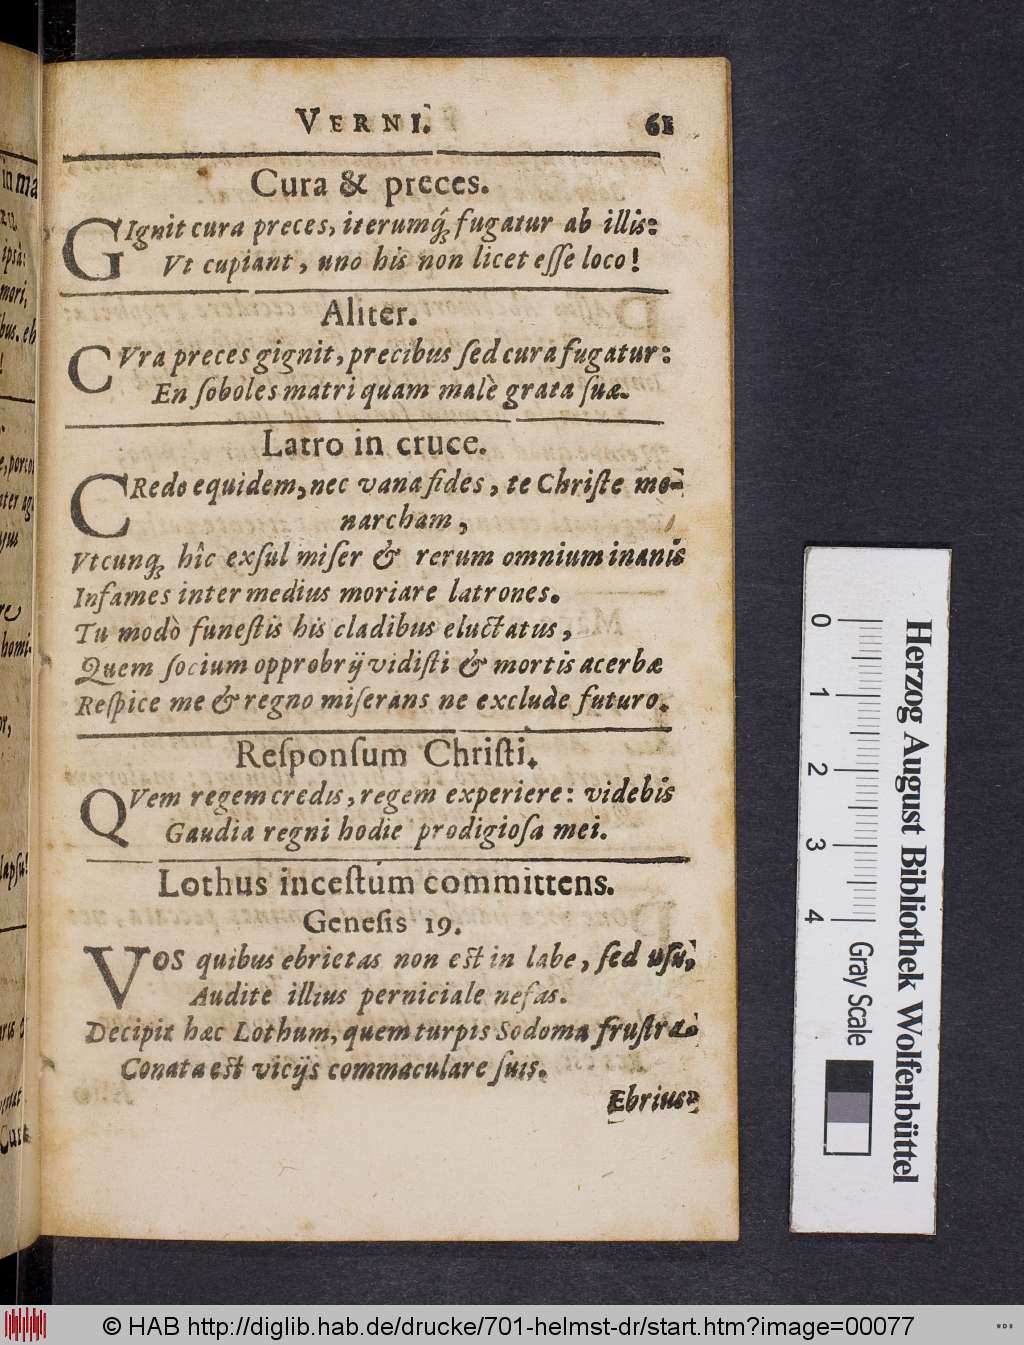 VERNI. 61
Cura & preces.
GIgnit cura preces, iterumq́; fugatur ab illis:
Vt cupiant, uno his non licet eſſe loco!
Aliter.
CVra preces gignit, precibus ſed cura fugatur:
En ſoboles matri quam malè grata ſuæ.
Latro in cruce.
CRedo equidem, nec vana fides, te Chriſte mo-
narcham,
Vtcunq; hîc exſul miſer & rerum omnium inanis
Infames inter medius moriare latrones.
Tu modò funeſtis his cladibus eluctatus,
Quem ſocium opprobrij vidiſti & mortis acerbæ
Reſpice me & regno miſerans ne exclude futuro.
Reſponſum Chriſti.
QVem regem credis, regem experiere: videbis
Gaudia regni hodie prodigioſa mei.
Lothus inceſtum committens.
Geneſis 19.
VOS quibus ebrietas non eſt in labe, ſed uſu,
Audite illius perniciale nefas.
Decipit hæc Lothum, quem turpis Sodoma fruſtra
Conata eſt vicijs commaculare ſuis.
Ebrius
in ma
ipsà:
mori,
bus. eb
!
homi-
lapſu!
0 1 2 3 4
Gray Scale
Herzog August Bibliothek Wolfenbüttel
© HAB http://diglib.hab.de/drucke/701-helmst-dr/start.htm?image=00077